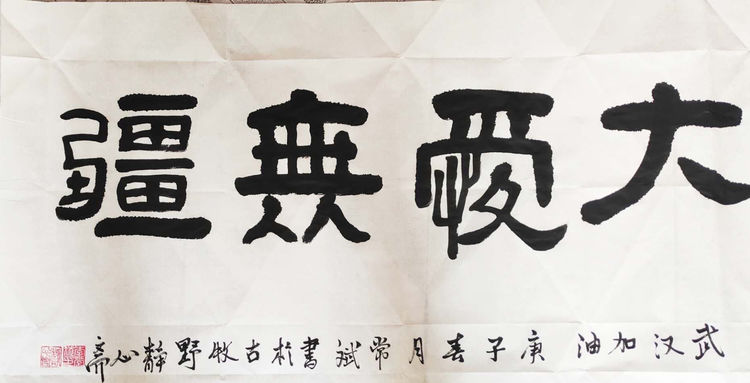 大愛無疆
武汉加油 庚子春月常斌書於古牧野静心斋